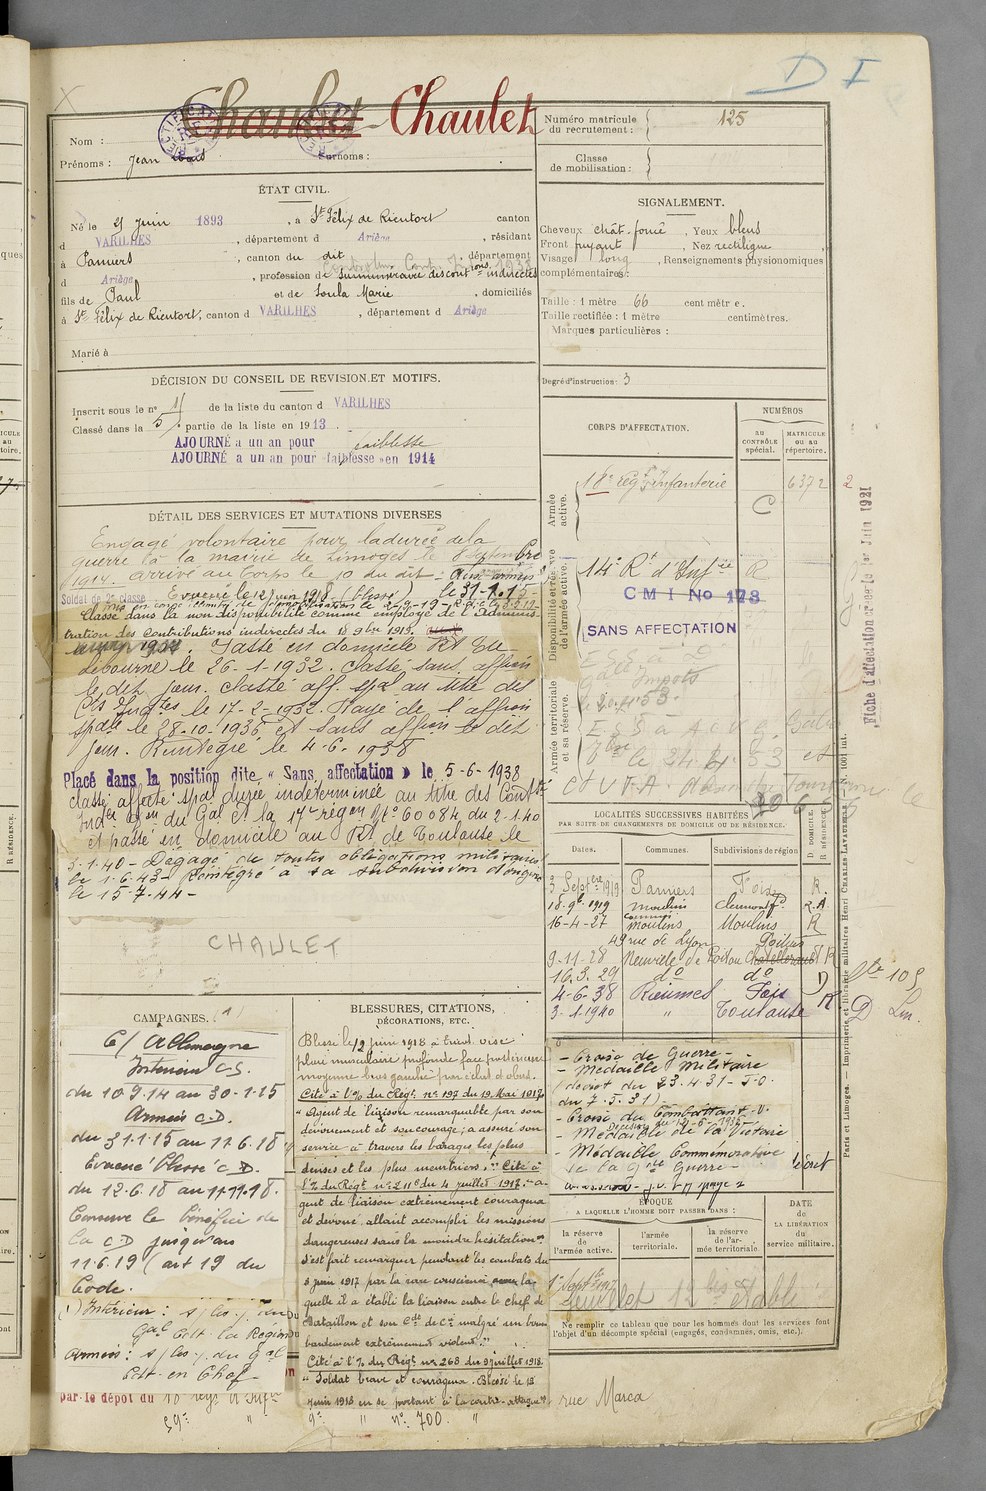 D I
Chaulet Chaulet
Nom :
Prénoms : Jean Louis Surnoms :
Numéro matricule du recrutement : 125
Classe de mobilisation :
ÉTAT CIVIL.
Né le 21 juin 1893, à St Félix de Rieutort canton
d VARILHES, département d Ariège, résidant
à Pamiers, canton du dit département
d Ariège, profession de surnuméraire des contons indirectes
fils de Paul et de Soula Marie, domiciliés
à St Félix de Rieutort, canton d VARILHES, département d Ariège
Marié à
SIGNALEMENT.
Cheveux chât. foncé, Yeux bleus
Front fuyant, Nez rectiligne
Visage long, Renseignements physionomiques
complémentaires :
Taille : 1 mètre 66 centimètre.
Taille rectifiée : 1 mètre centimètres.
Marques particulières :
Degré d'instruction : 3
DÉCISION DU CONSEIL DE REVISION ET MOTIFS.
Inscrit sous le n° 11 de la liste du canton d VARILHES
Classé dans la 5 partie de la liste en 1913.
AJOURNÉ à un an pour faiblesse
AJOURNÉ à un an pour faiblesse en 1914
DÉTAIL DES SERVICES ET MUTATIONS DIVERSES
Engagé volontaire pour la durée de la
guerre à la mairie de Limoges le 8 septembre
1914. arrivé au Corps le 10 du dit - Aux armées
Soldat de 2e classe Evacué le 12 juin 1918 (blessé) le 31-1-15-
Classé dans la non disponibilité comme employé de l'Adminis-
tration des Contributions indirectes du 18 9bre 1919.
Passé en domicile Rt de
Libourne le 26-1-1932. Classé sans affion
le dit jour. Classé aff. spal au titre des
Cts Indtes le 17-2-1932. Rayé de l'affion
spale le 28-10-1936 et sans affion le dit
jour. Réintégré le 4-6-1938
Placé dans la position dite « Sans affectation » le 5-6-1938
classé affecté spal durée indéterminée au titre des Contons
Indtes du Gal Ct la 17e région No 60084 du 2-1-40
et passé en domicile au Rt de Toulouse le
3-1-40 - Dégagé de toutes obligations militaires
le 1-6-43 - Réintégré à sa subdivision d'origine
le 15-7-44 -
CHAULET
CORPS D'AFFECTATION.
NUMÉROS
au CONTRÔLE spécial.
MATRICULE ou au répertoire.
Armée active.
18e régt d'Infanterie C 6372
Disponibilité et réserve de l'armée active.
14e Rt d'Infie R
C M I No 173
SANS AFFECTATION
Armée territoriale et sa réserve.
Fiche d'affectation créée le 1er Juin 1921
LOCALITÉS SUCCESSIVES HABITÉES
PAR SUITE DE CHANGEMENTS DE DOMICILE OU DE RÉSIDENCE.
Dates. Communes. Subdivisions de région D DOMICILE. R RÉSIDENCE.
3 Septbre 1919 Pamiers Foix R.
18-9b 1919 Moulins Clermont Fd R.A
16-4-27 Moulins Moulins R
49 rue de Lyon Poitiers
9-11-28 Neuville de Poitou Chatellerault R
16.3.29 do do D
4-6-38 Rieumes Foix R
3-1-1940 " Toulouse
CAMPAGNES. (1)
C/ Allemagne
Intérieur C.S.
du 10.9.14 au 30.1.15
Armées C.D.
du 31.1.15 au 11.6.18
Evacué blessé C.D.
du 12.6.18 au 11.11.18.
Conserve le bénéfice de
la C D jusqu'au
11.6.19 (art 19 du
Code.
(1) Intérieur : s/les y du
Gal Cdt la Région
Armées : s/les y du Gal
Cdt en Chef
par le dépôt du 18e régt d'Infie
59e "
BLESSURES, CITATIONS,
DÉCORATIONS, ETC.
Blessé le 12 juin 1918 à Tricot. Oise
plaie musculaire profonde face postérieure
moyenne bras gauche par éclat d'obus.
Cité à l'O du Régt no 197 du 19 Mai 1917
"Agent de liaison remarquable par son
dévouement et son courage; a assuré son
service à travers les barages les plus
denses et les plus meurtriers." Cité à
l'O du Régt no 211 du 4 juillet 1917. "A-
gent de liaison extrêmement courageux
et dévoué, allait accomplir les missions
dangereuses sans la moindre hésitation
s'est fait remarquer pendant les combats du
3 juin 1917 par la rare conscience avec la-
quelle il a établi la liaison entre le chef de
Bataillon et son Cdt de Cie malgré un bom
bardement extrêmement violent."
Cité à l'O du Régt no 268 du 9 juillet 1918.
"Soldat brave et courageux. Blessé le 12
juin 1918 en se portant à la contre-attaque"
9e " no 700. "
- Croix de Guerre -
- Médaille Militaire
(décret du 23.4.31 - J.O.
du 7.5.31)
- Croix du Combattant -
- Médaille de la Victoire
- Médaille Commémorative
de la Gde Guerre -
ÉPOQUE
A LAQUELLE L'HOMME DOIT PASSER DANS :
la réserve de l'armée active.
l'armée territoriale.
la réserve de l'armée territoriale.
DATE de LA LIBÉRATION du service militaire.
feuillet 12 bis établi
Ne remplir ce tableau que pour les hommes dont les services font
l'objet d'un décompte spécial (engagés, condamnés, omis, etc.).
rue Marca
Paris et Limoges. — Imprimerie et librairie militaires Henri CHARLES-LAVAUZELLE